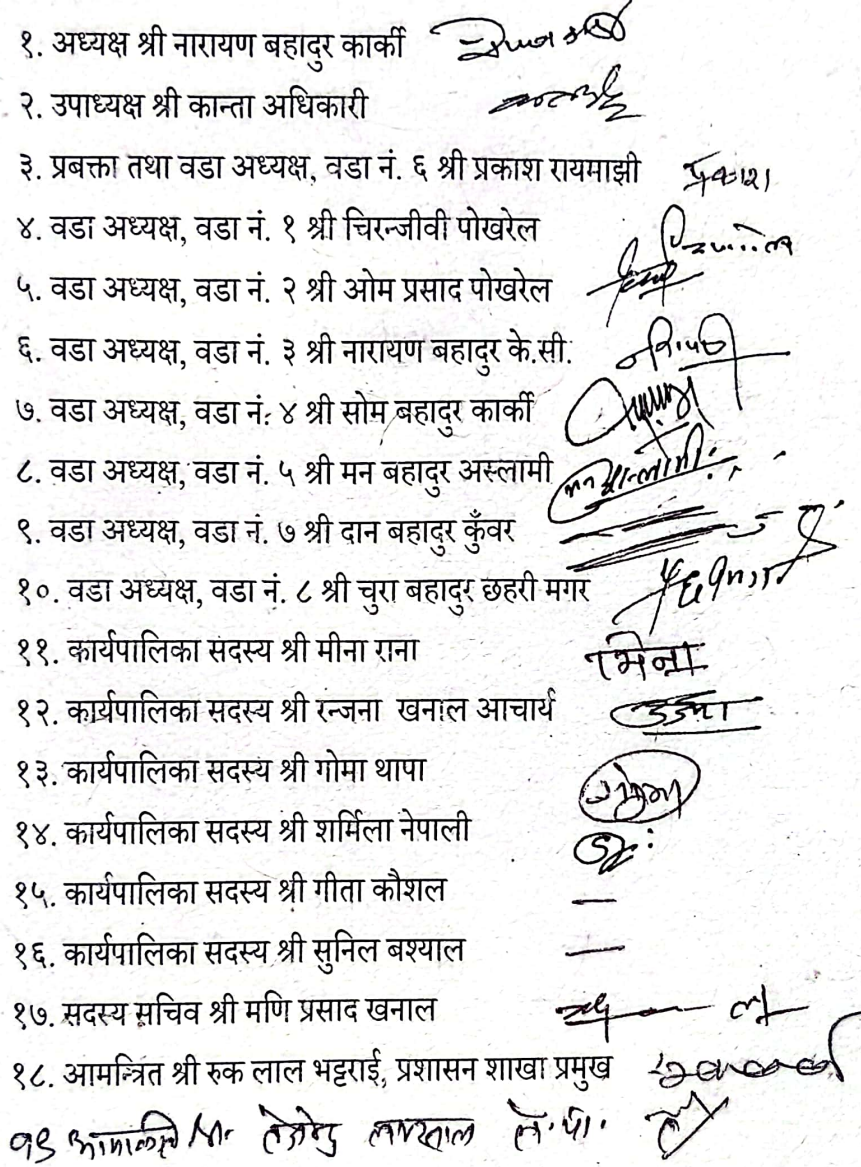 १. अध्यक्ष श्री नारायण बहादुर कार्की
२. उपाध्यक्ष श्री कान्ता अधिकारी
३. प्रबक्ता तथा वडा अध्यक्ष, वडा नं. ६ श्री प्रकाश रायमाझी प्रकाश
४. वडा अध्यक्ष, वडा नं. १ श्री चिरन्जीवी पोखरेल
५. वडा अध्यक्ष, वडा नं. २ श्री ओम प्रसाद पोखरेल
६. वडा अध्यक्ष, वडा नं. ३ श्री नारायण बहादुर के.सी.
७. वडा अध्यक्ष, वडा नं. ४ श्री सोम बहादुर कार्की
८. वडा अध्यक्ष, वडा नं. ५ श्री मन बहादुर अस्लामी
९. वडा अध्यक्ष, वडा नं. ७ श्री दान बहादुर कुँवर
१०. वडा अध्यक्ष, वडा नं. ८ श्री चुरा बहादुर छहरी मगर
११. कार्यपालिका सदस्य श्री मीना राना मिना
१२. कार्यपालिका सदस्य श्री रन्जना खनाल आचार्य
१३. कार्यपालिका सदस्य श्री गोमा थापा
१४. कार्यपालिका सदस्य श्री शर्मिला नेपाली
१५. कार्यपालिका सदस्य श्री गीता कौशल —
१६. कार्यपालिका सदस्य श्री सुनिल बश्याल —
१७. सदस्य सचिव श्री मणि प्रसाद खनाल
१८. आमन्त्रित श्री रुक लाल भट्टराई, प्रशासन शाखा प्रमुख
१९